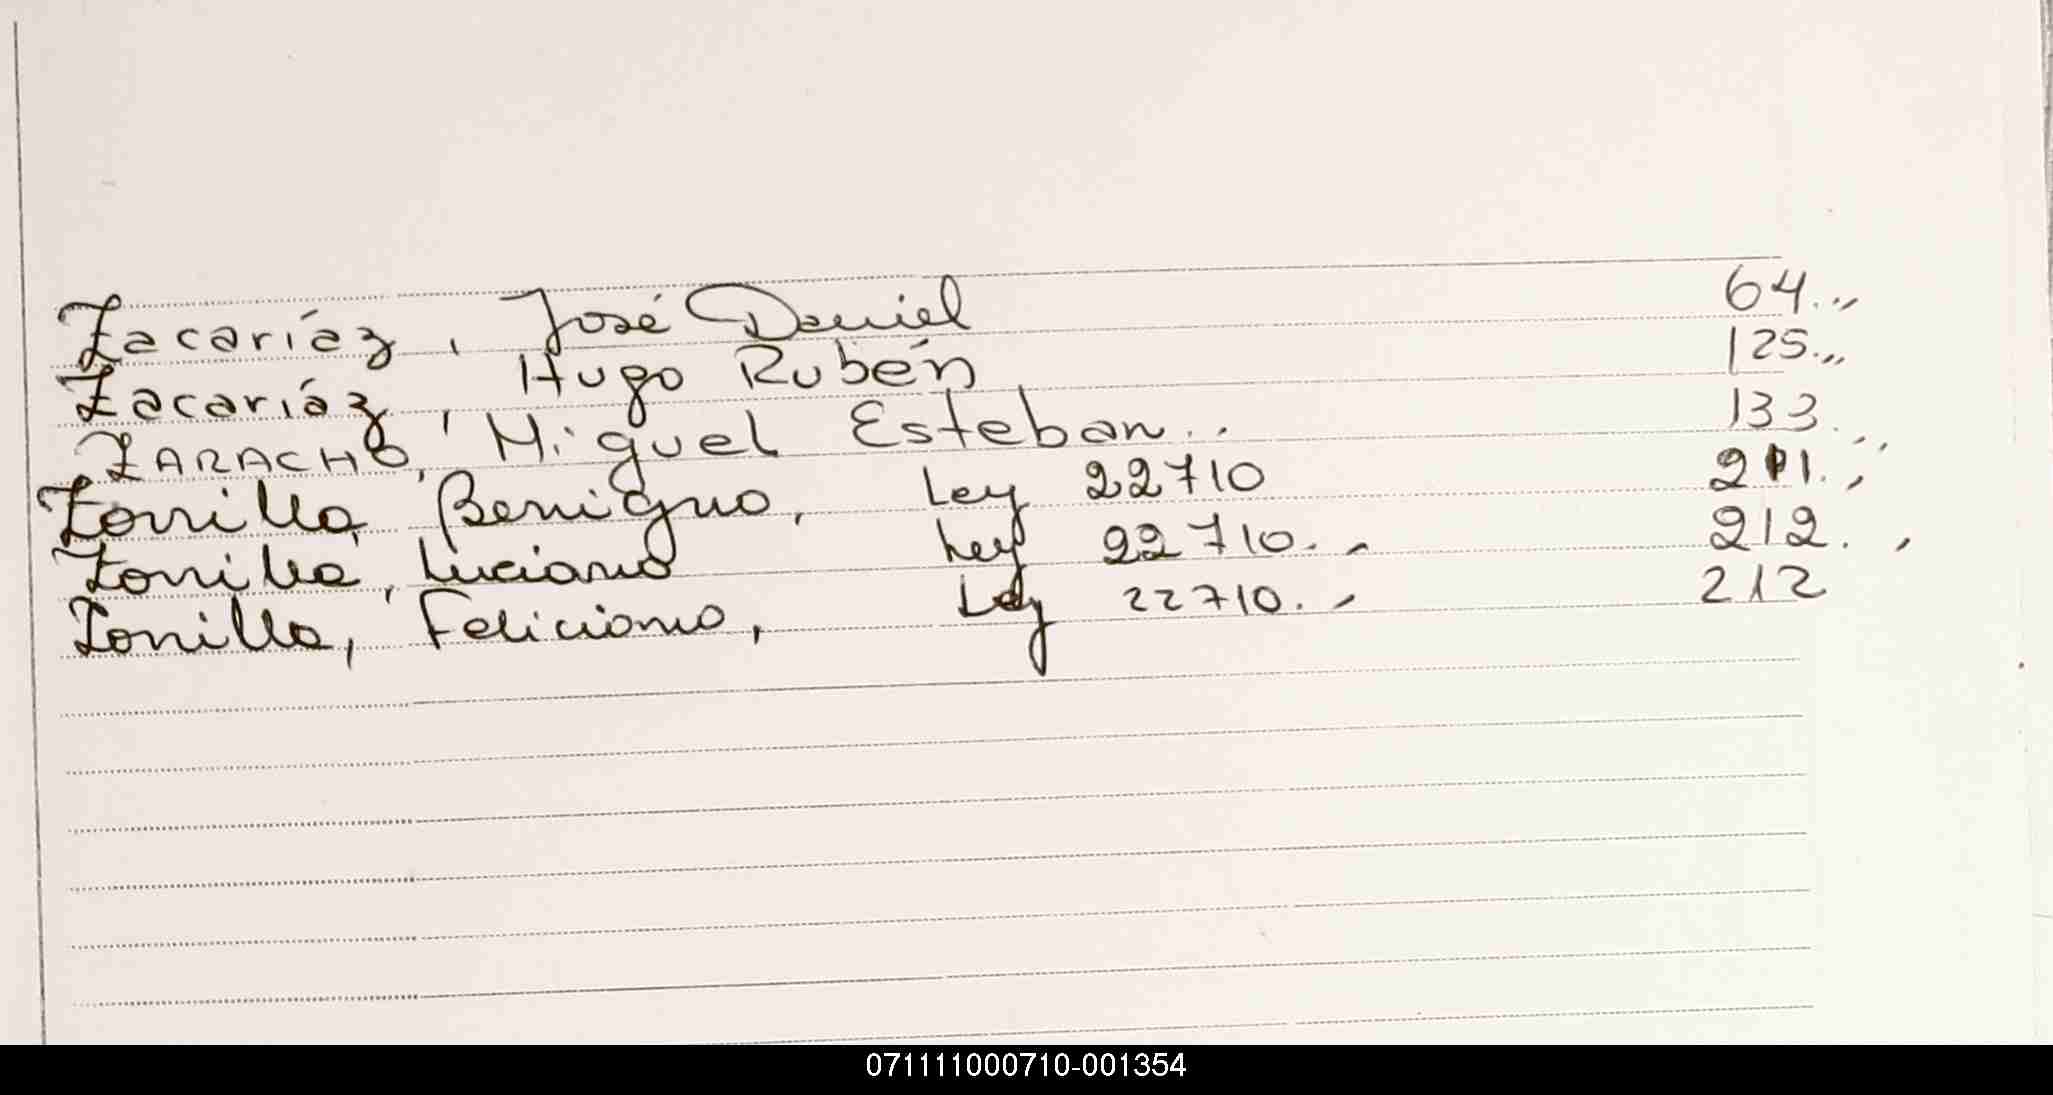 Zacaríaz, José Daniel 64.,,
Zacaríaz, Hugo Rubén 125.,,
ZARACHO, Miguel Esteban.. 133..,
Zorrilla, Benigno, Ley 22710 211.,
Zorrilla, Luciano Ley 22710.- 212.,
Zorrilla, Feliciano, Ley 22710.- 212
071111000710-001354